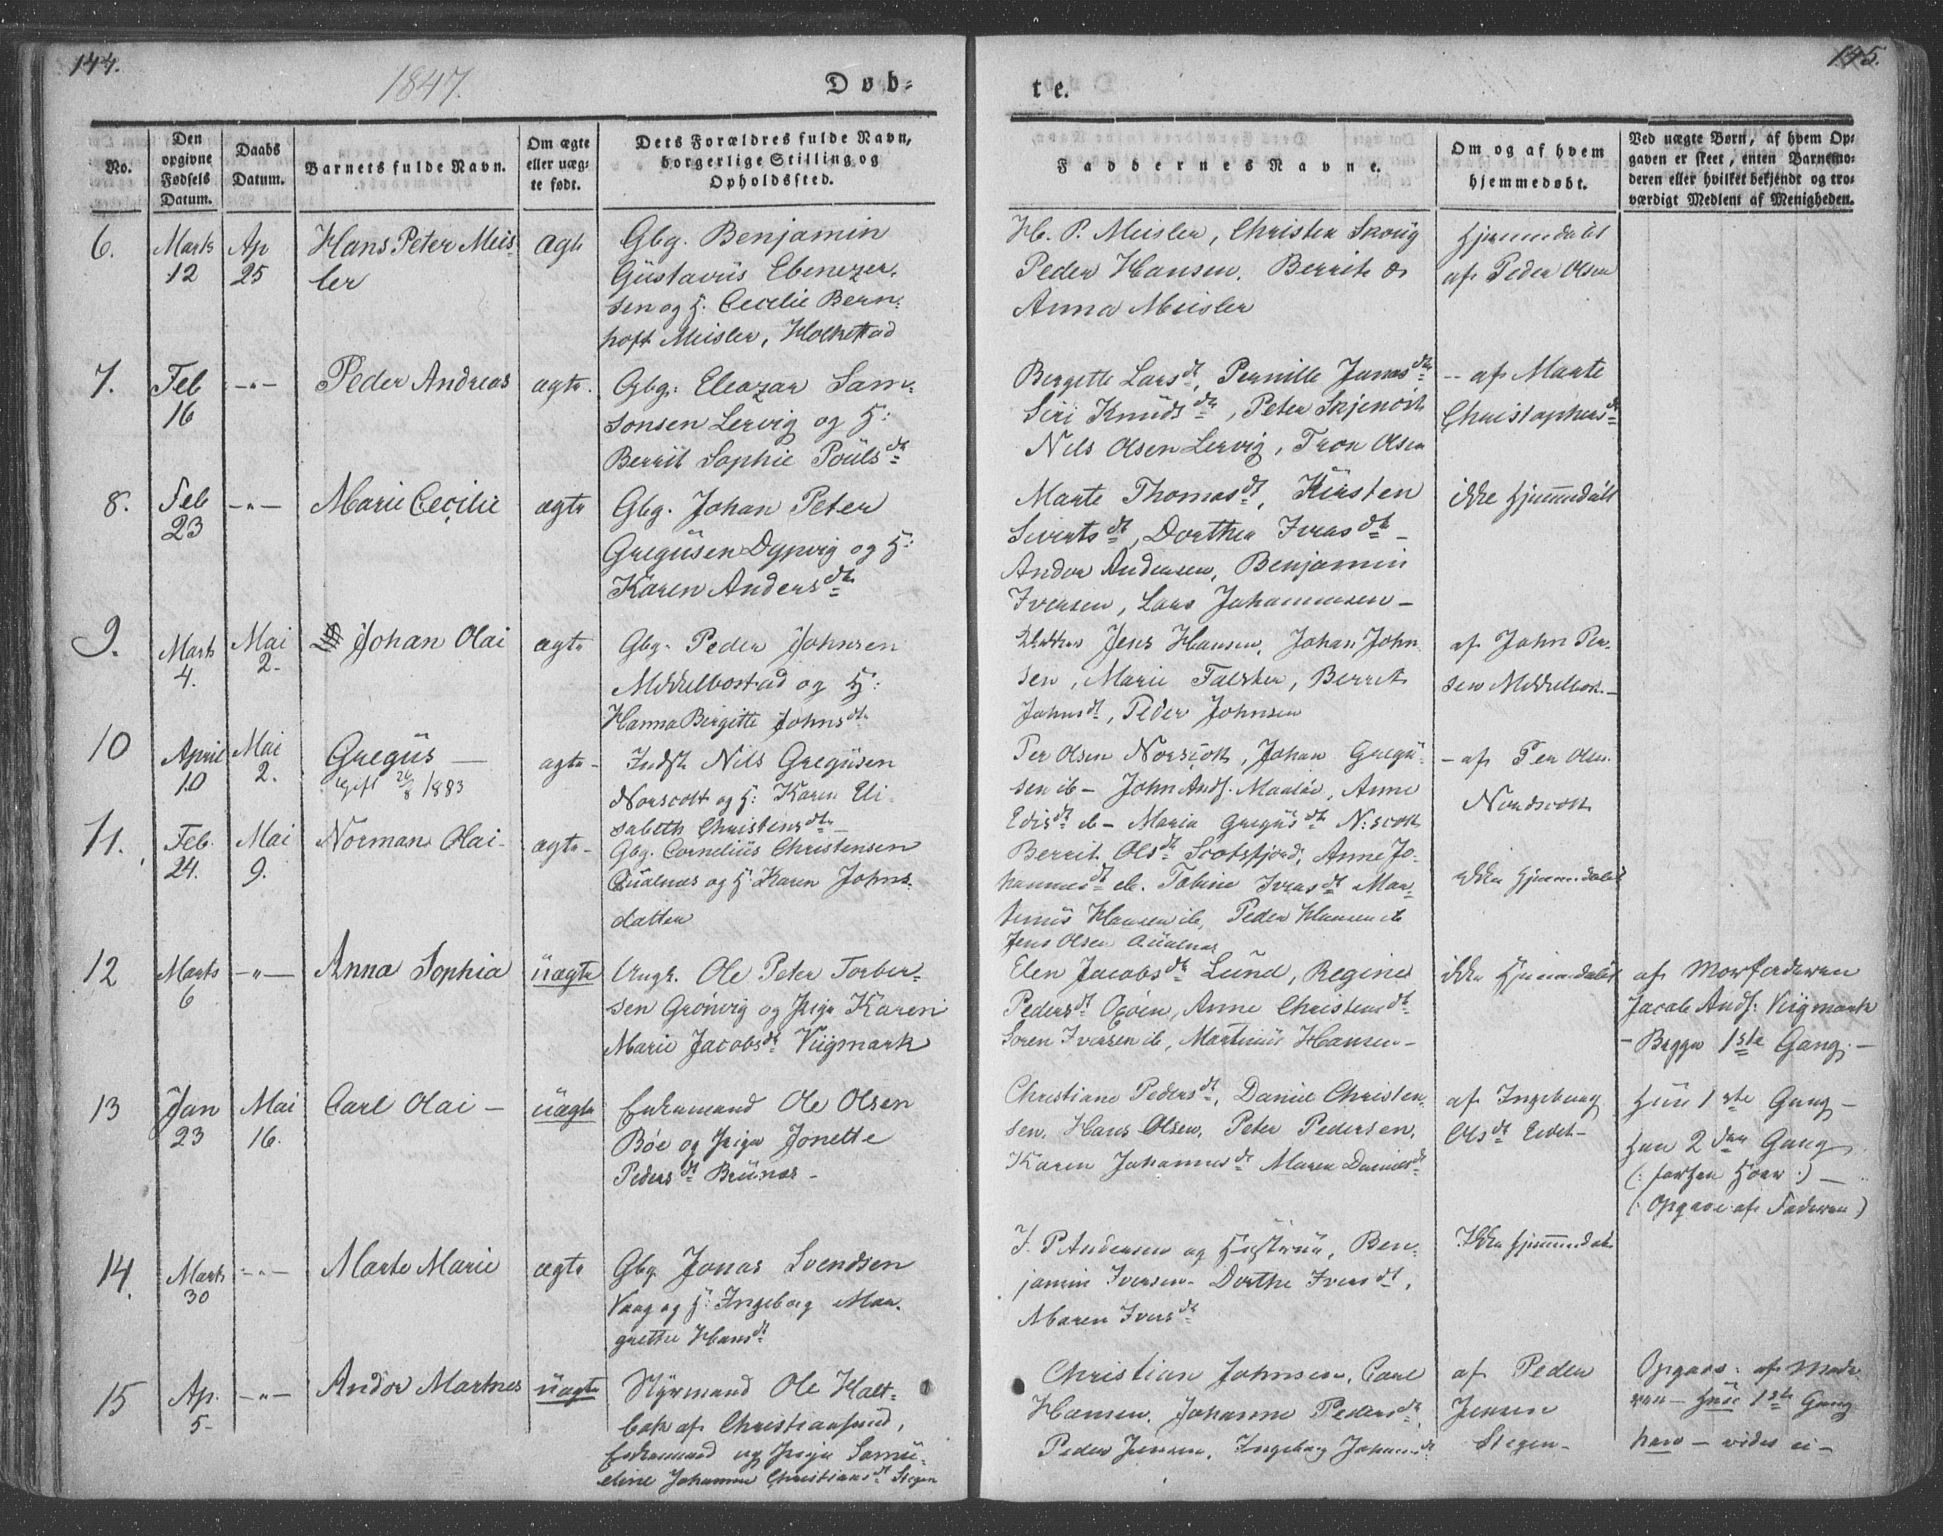 144.
145.
1847.
Døb-
te.
No.
Den opgivne Fødsels Datum.
Daabs Datum.
Barnets fulde Navn.
Om ægte eller uægte født.
Dets Forældres fulde Navn, borgerlige Stilling og Opholdssted.
Faddernes Navne.
Om og af hvem hjemmedøbt.
Ved uægte Børn, af hvem Opgaven er skeet, enten Barnemoderen eller hvilket bekjendt og troværdigt Medlem af Menigheden.
6.
Marts 12
Ap 25
Hans Peter Meisler
ægte
Gbg. Benjamin
Gustavus Ebenezer-
sen og H. Cecilie Bern-
hoft Meisler,
H. P. Meisler, Christen Skovig
Peder Hansen, Berrit &
Anna Meisler
Hjemmedøbt
af Peder Olsen
7.
Feb 16
-"-
Peder Andreas
ægte.
Gbg: Eleazar Sam-
sonsen Lervig og H:
Berrit Sophie Pouls dt
Bergette Lars dt, Pernille Jonas dtr
Siri Knuds dtr, Peter
Nils Olsen Lervig, Tron Olsen
-- af Marte
Christophers dt
8.
Feb 23
-"-
Marie Cecilie
ægte
Gbg. Johan Peter
Gregusen Dypvig og H:
Karen Anders dtr
Marte Thomas dt, Kirsten
Siverts dt, Dorthea Ivers dt -
Andor Andersen, Benjamin
Iversen, Lars Johannesen -
ikke Hjemmedøbt
9.
Marts 4.
Mai 2.
Johan Olai
ægte
Gbg. Peder Johnsen
Middelbostad og H:
Hanna Birgitte Johns dt
Jens Hansen, Johan John-
sen, Marie Falster, Berret
Johns dt, Peder Johnsen
af John Per-
sen Middelbost-
10
April 10
Mai 2.
Gregus —
gift 26/8 1883
ægte -
Indst. Nils Gregusen
Norscott og H: Karen Eli-
sabeth Christens dtr
Per Olsen Norscott, Johan Gregu-
sen ib - John Ands. Maaløe, Anne
ib - Maria Gregus dt N:scott
- af Per Olsen
Nordscott
11.
Feb. 24.
Mai 9.
Norman Olai -
ægte -
Gbg. Cornelius Christensen
Qualnæs og H: Karen Johns-
datter
Berrit Ols dt Scotsfjord, Anne Jo-
hannes dt ib. Tobine Ivers dt Mar-
tinus Hansen ib, Peder Hansen ib
Jens Olsen Qualnæs
ikke Hjemmedøbt
12
Marts 6
-"-
Anna Sophia
uægte
Ungk. Ole Peter Torber-
sen Grønvig og Piga Karen
Marie Jacobs dt Viigmark
Elen Jacobs dt Lund, Regine
Peders dt, Anne Christens dt
Søren Iversen ib, Martinus Hansen -
ikke Hjemmedøbt
af Morfaderen
Jacob Ands: Viigmark
- Begge 1ste Gang. -
13
Jan 23
Mai 16.
Carl Olai -
uægte
Enkemand Ole Olsen
Bøe og Piga Jonette
Peders dt Brunæs -
Christiane Peders dt, Daniel Christen-
sen, Hans Olsen, Peter Pedersen,
Karen Johannes dt Maren Daniels dt
af Ingeborg
Ols dt Eidet -
Hun 1ste Gang -
han 2den Gang
(: :) -
(: Opgave af Faderen)
14.
Marts 30
-"-
Marte Marie
ægte
Gbg Jonas Svendsen
Vaag og H: Ingeborg Mar-
grethe Hans dt
J. P. Andersen og Hustrue, Ben-
jamin Iversen - Dorthe Ivers dt,
Maren Ivers dt
Ikke Hjemmedøbt
15
Ap. 5-
-"-
Andor Martines
uægte
Styrmand Ole Holt-
bak af Christiansund,
Enkemand og Piga Samu-
eline Johanna Christians dt Stegen
Christian Johnsen, Carl
Hansen, Johanne Peders dt,
Peder Jensen, Ingeborg Johans dt
af Peder
Jensen
Stegen -
Opgave: af Mode-
ren - Hun 1ste Gang
han - vides ei -